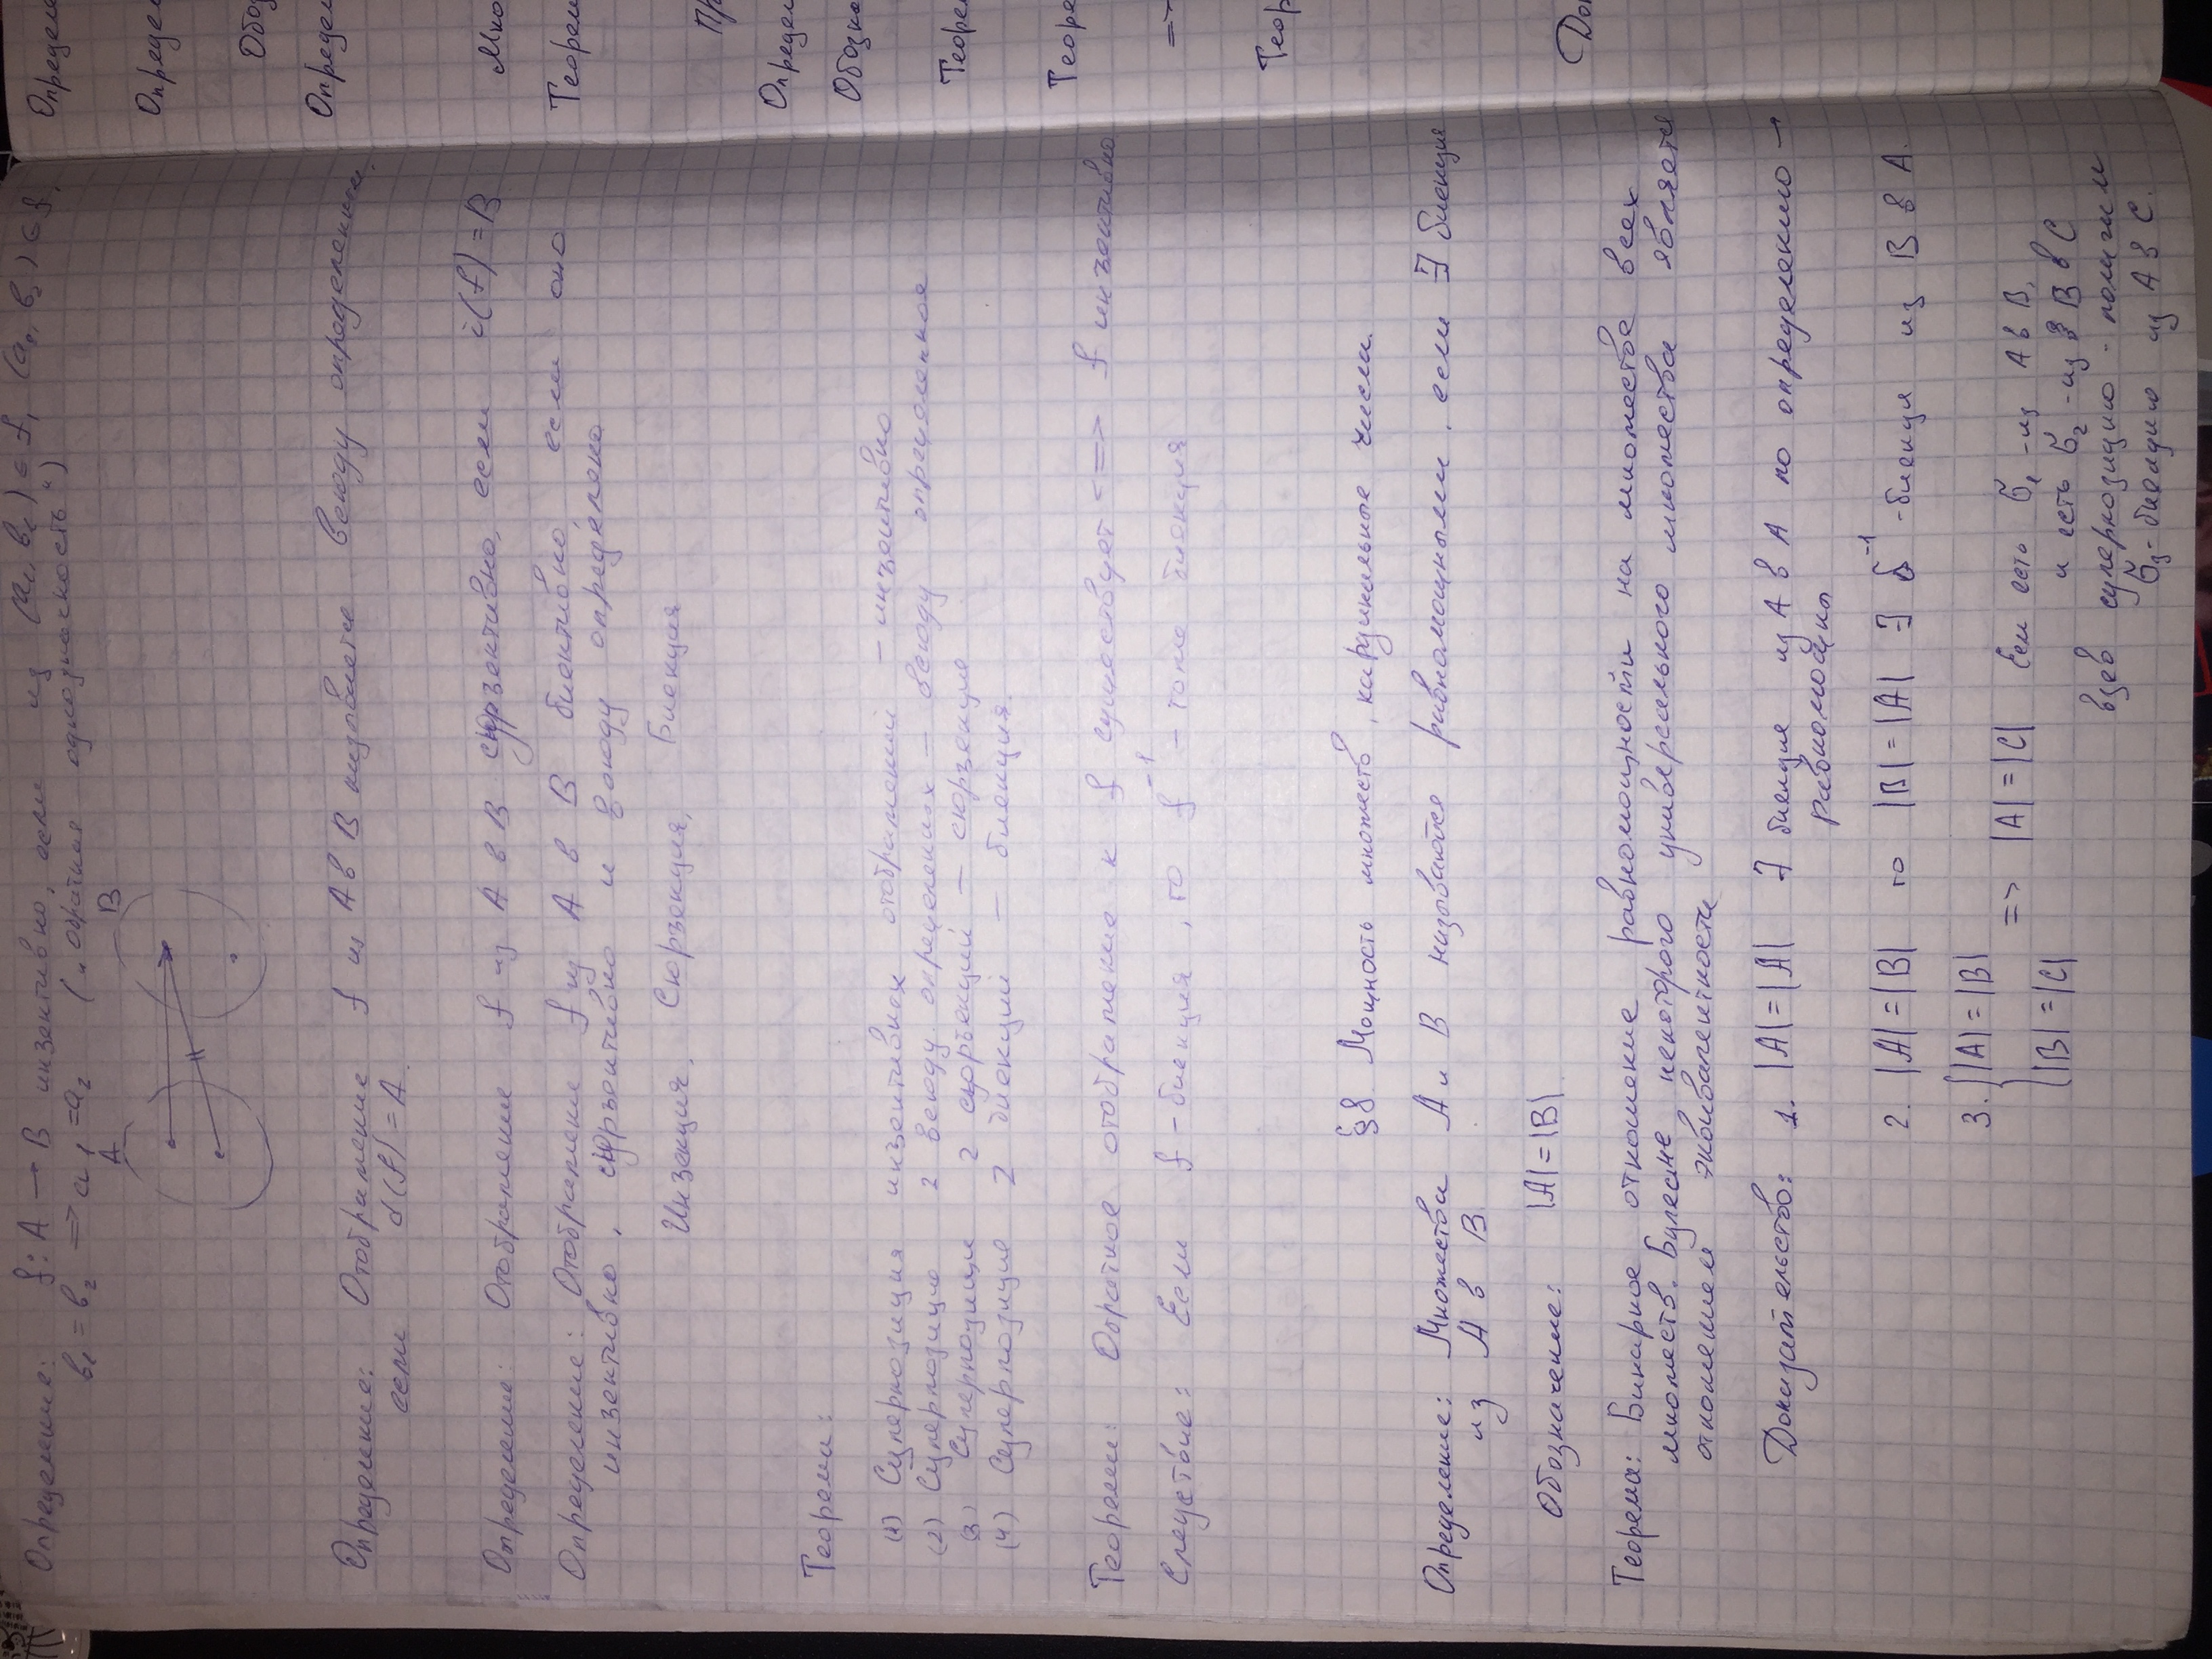 Определение: f: A → B инъективно, если из (a₁, b₁) ∈ f, (a₂, b₂) ∈ f,
b₁ = b₂ => a₁ = a₂ („обратная однозначность“)
A B
Определение: Отображение f из A в B называется всюду определенным,
если d(f) = A.
Определение: Отображение f из A в B сюръективно, если i(f) = B
Определение: Отображение f из A в B биективно, если оно
инъективно, сюръективно и всюду определено
Инъекция, Сюръекция, Биекция
Теорема:
(1) Суперпозиция инъективных отображений – инъективно
(2) Суперпозиция 2 всюду определенных – всюду определенное
(3) Суперпозиция 2 сюръекций – сюръекция
(4) Суперпозиция 2 биекций – биекция.
Теорема: Обратное отображение к f существует <=> f инъективно
Следствие: Если f – биекция, то f⁻¹ – тоже биекция
§8. Мощность множеств, кардинальные числа.
Определение: Множества A и B называются равномощными, если ∃ биекция
из A в B.
Обозначение: |A| = |B|.
Теорема: Бинарное отношение равномощности на множестве всех
множеств. Булеане некоторого универсального множества является
отношением эквивалентности
Доказательство: 1. |A| = |A| ∃ биекция из A в A по определению →
равномощны
2. |A| = |B| то |B| = |A| ∃ б⁻¹ - биекция из B в A.
3. { |A| = |B|
=> |A| = |C| Если есть б₁ - из A в B,
|B| = |C| и есть б₂ - из B в C
взяв суперпозицию - получим
б₃ - биекцию из A в C.
Определе
Определе
Обоз
Определ
Мно
Теорем
Пр
Определ
Обозна
Теоре
Теоре
=>
Теор
Док